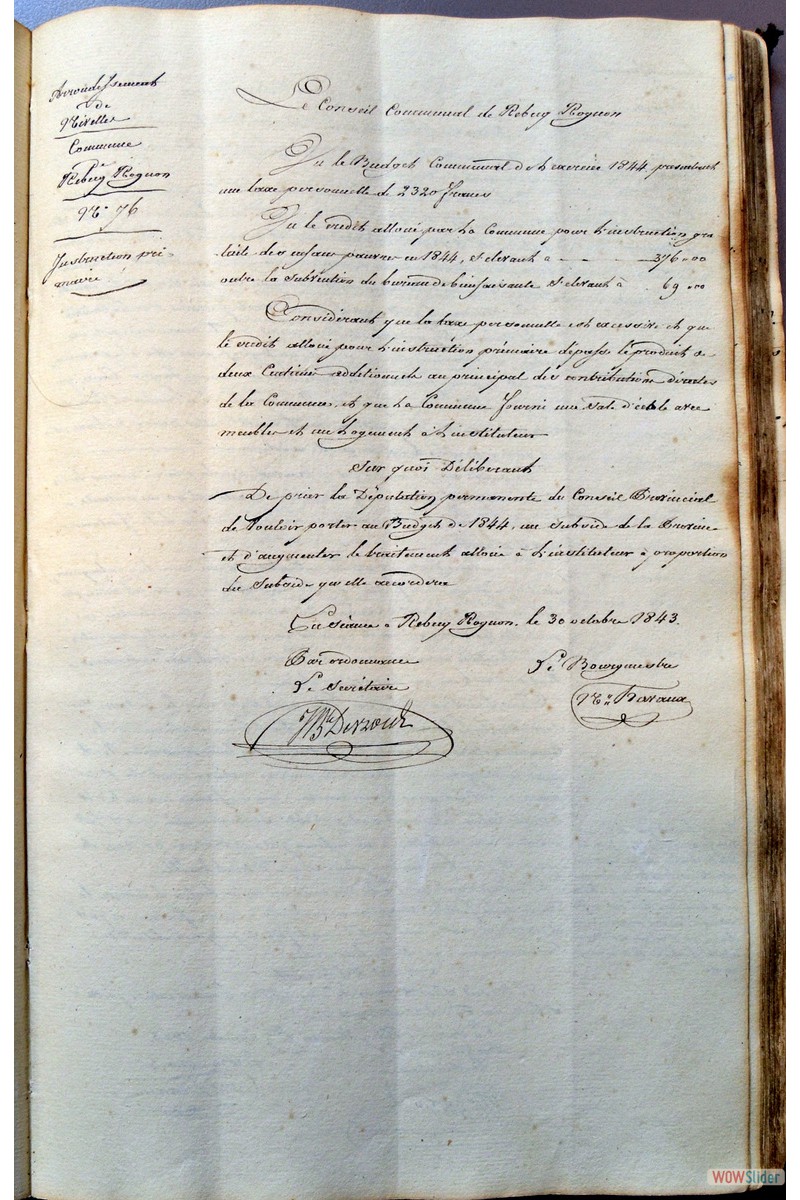 Arrondissement
de
Nivelles
Commune
de
Rebecq Rognon
N° 76
Instruction pri-
maire
Le Conseil Communal de Rebecq Rognon
Vu le Budget Communal de l'exercice 1844 présentant
une taxe personnelle de 2320 francs
Vu le crédit alloué par la Commune pour l'instruction gra-
tuite des enfans pauvres en 1844, s'élevant à 376,,00
outre la subvention du bureau de bienfaisance s'élevant à 69,,00
Considérant que la taxe personnelle est excessive et que
le crédit alloué pour l'instruction primaire dépasse le produit de
deux Centimes additionnels au principal des contributions directes
de la Commune, et que la Commune fourni une Sale d'école avec
meubles et un logement à l'instituteur
Sur quoi Délibérant
De prier la Députation permanente du Conseil Provincial
de Vouloir porter au Budget de 1844, un subside de la Province
et d'augmenter le traitement alloué à l'instituteur à proportion
du Subside qu'elle accordera
En Séance à Rebecq Rognon, le 30 octobre 1843.
Par ordonnance
Le Bourgmestre
Le Secrétaire
WOWSlider